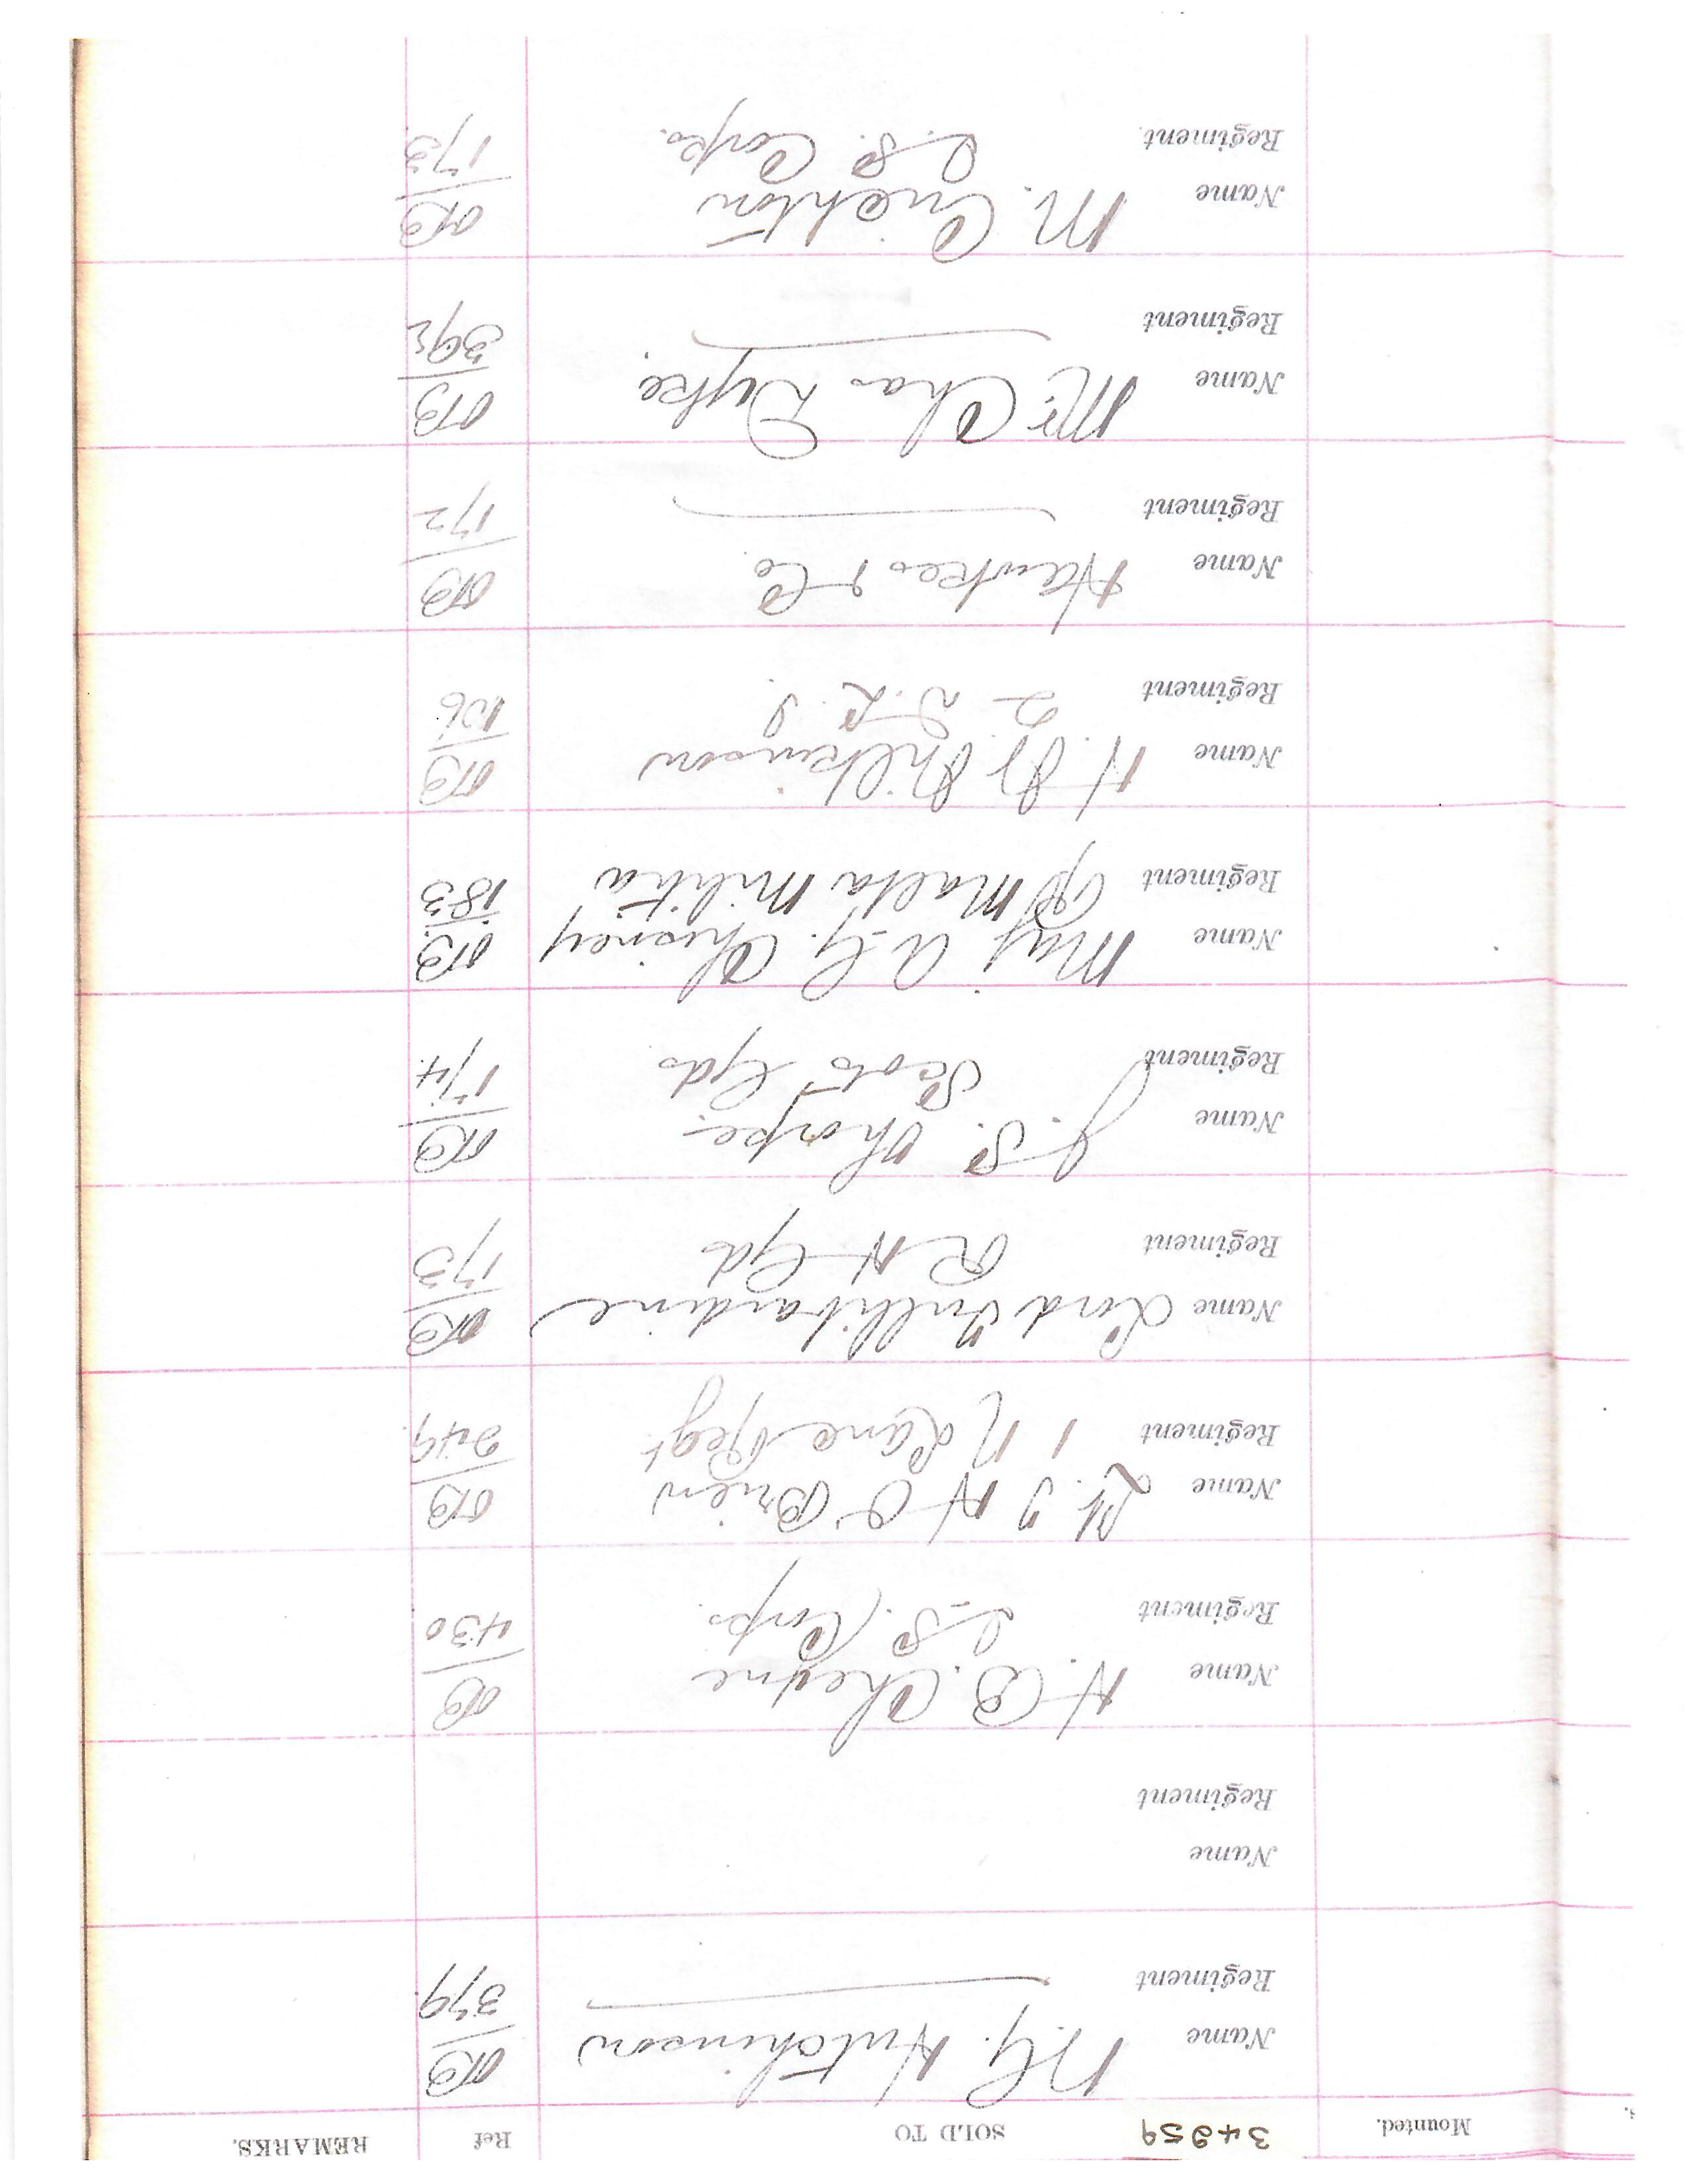 Mounted. 34859 SOLD TO Ref REMARKS.
Name N.G. Hutchinson OB
Regiment 379.
Name
Regiment
Name H. B. Cheyne OB
Regiment I. S. Corps. 430
Name Lt. J H O'Brien OB
Regiment 1 N Lanc Regt 249.
Name Lord Tullibardine OB
Regiment R H Gds 173
Name J. S. Thorpe. OB
Regiment Scots Gds 174.
Name Maj. A. G. Chesney OB
Regiment Malta Militia 183
Name H. Wilkinson OB
Regiment 2 D. L. I. 156
Name Hawkes & Co OB
Regiment 172
Name Mr. Chas Dyke. OB
Regiment 392
Name M. Crichton OB
Regiment. I. S. Corps. 173.